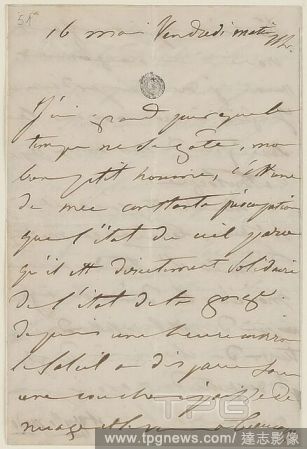 58
16 mai Vendredi matin
J'ai grand peur que le
temps ne se gâte, mon
bon petit homme, c'est une
de mes constantes préoccupations
que l'état du ciel parce
qu'il est directement solidaire
de l'état de ta gorge.
depuis une heure environ
le soleil a disparu sous
une couche épaisse de
nuages et
TPG
www.tpgnews.com/達志影像